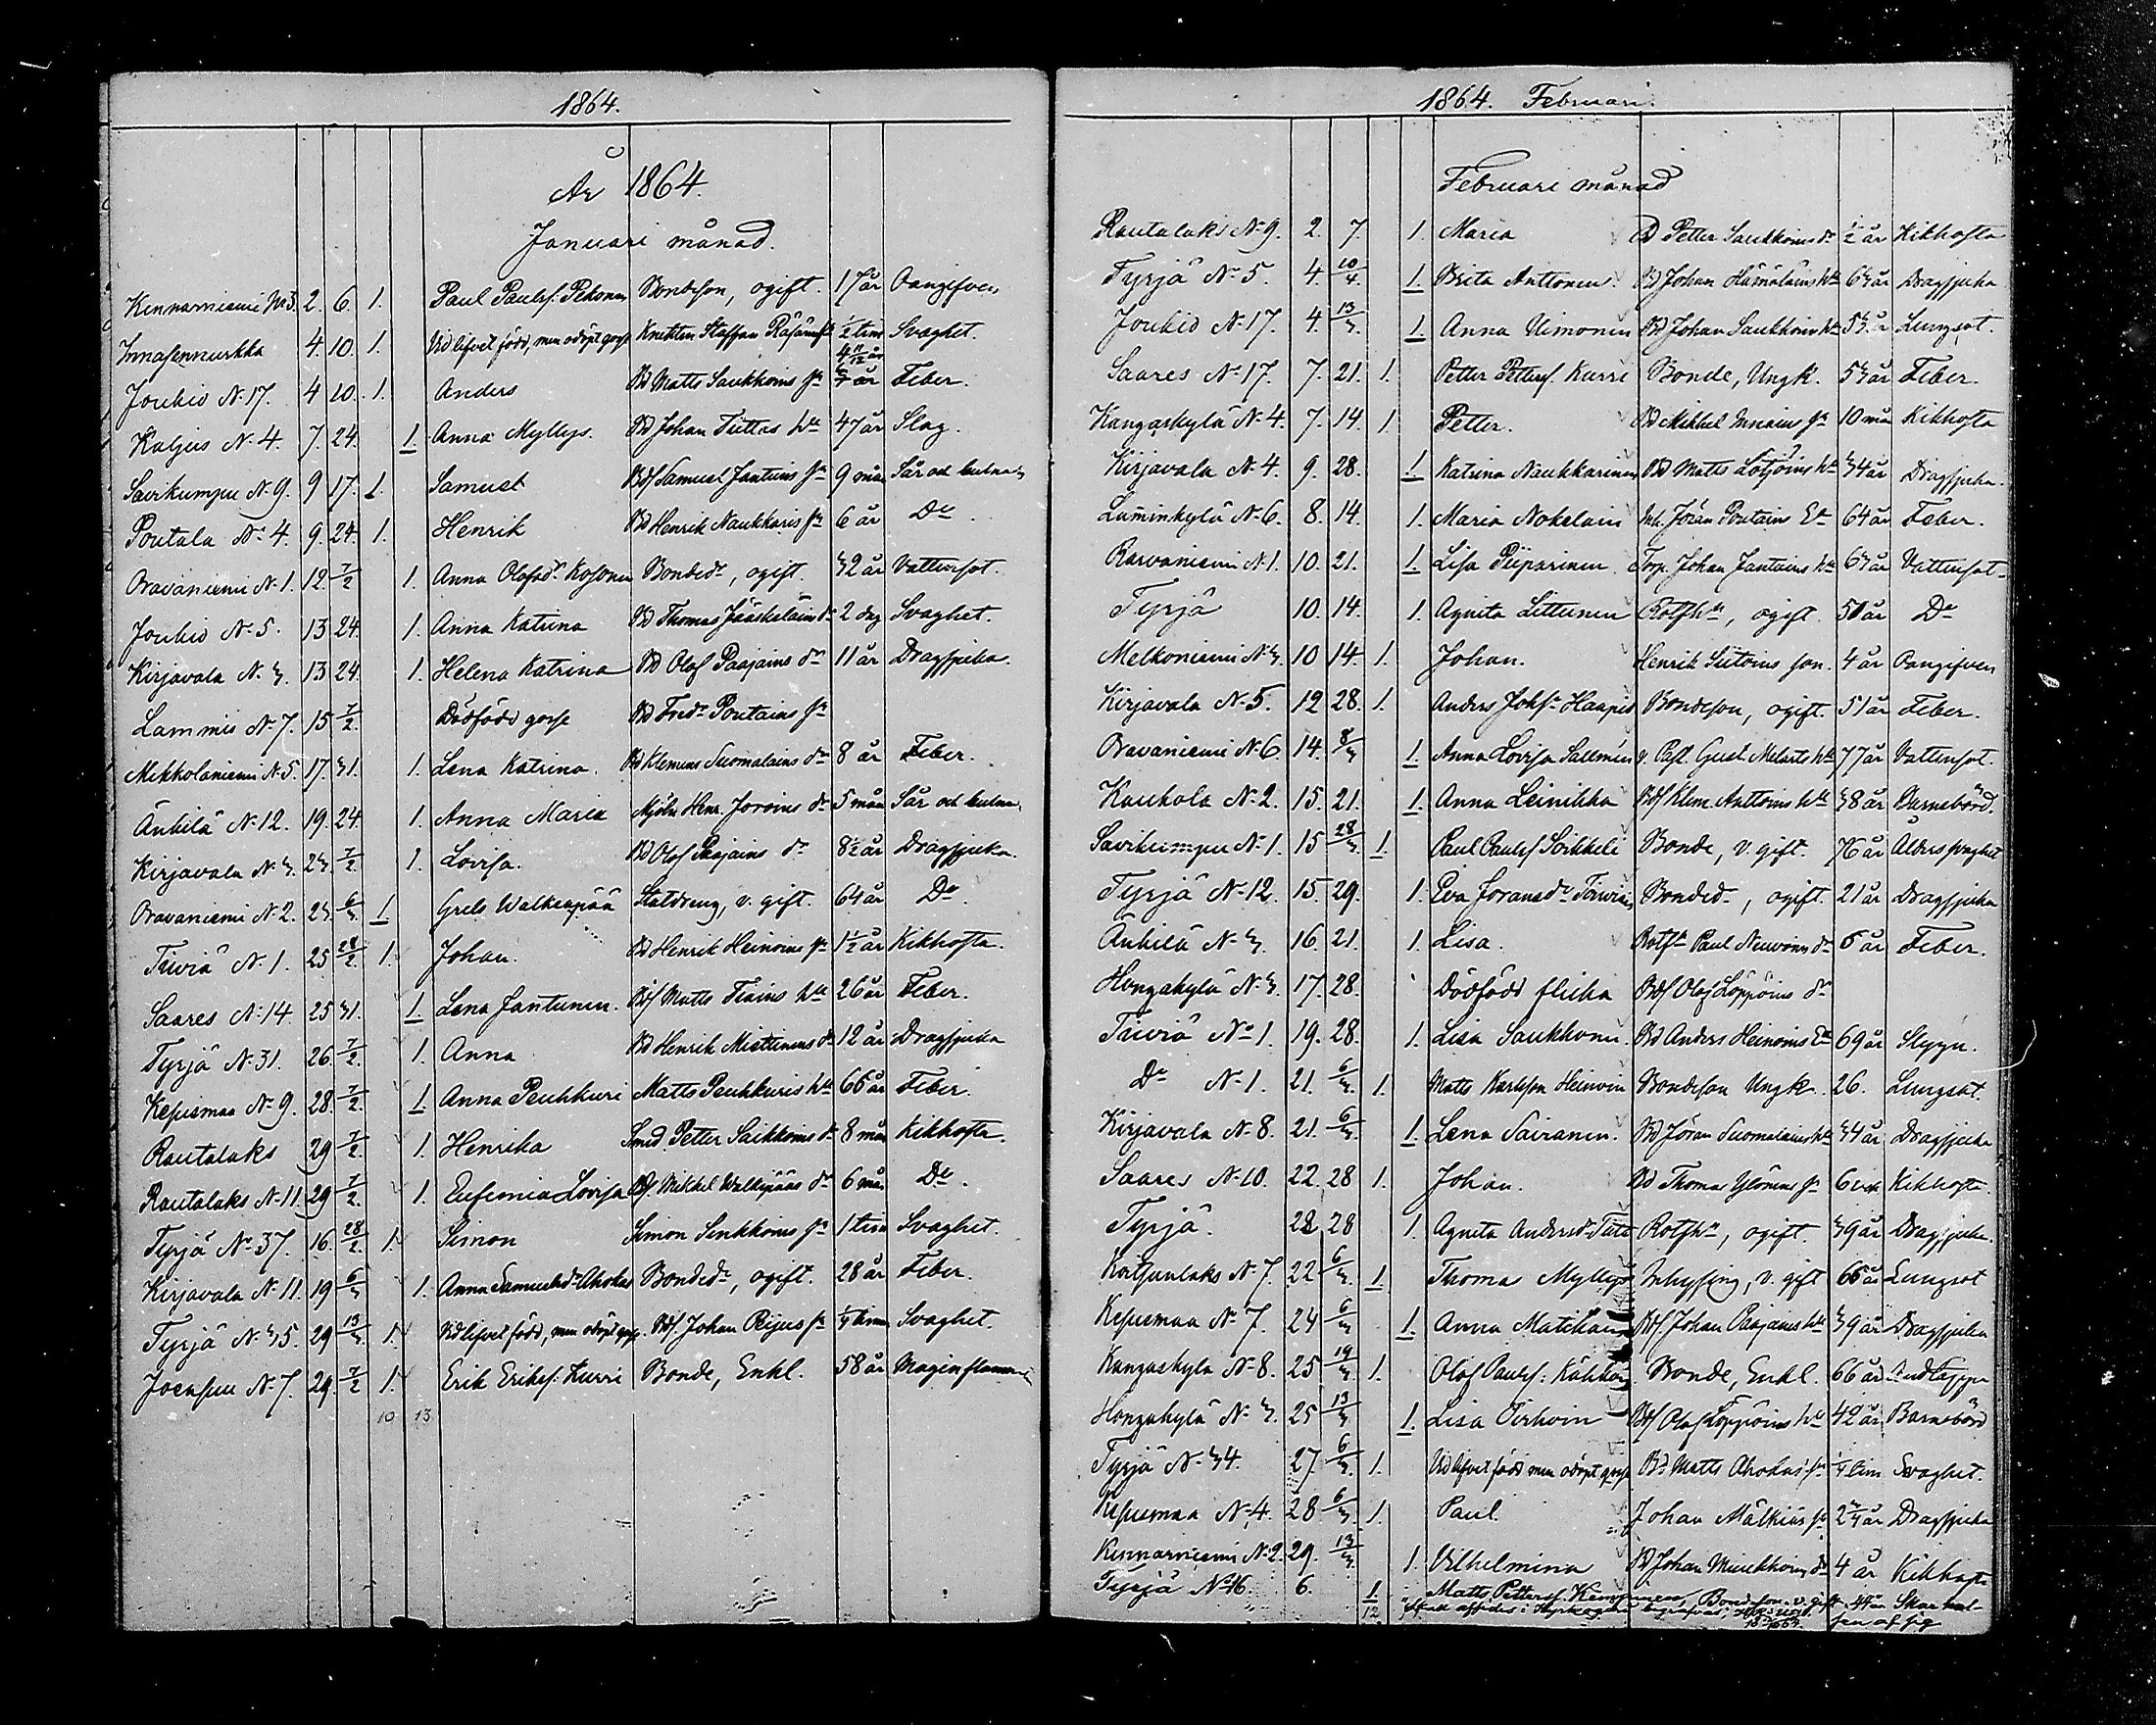 1864.
År 1864.
Januari månad.
Kennarniemi No 3. 2. 6. 1. Paul Paulss. Pekonen Bondeson, ogift. 17 år Oangifven
Innasennurkka 4. 10. 1. Vid lifvet född, men odöpt gosse Knekten Staffan Räsäins sn ½ tim Svaghet.
Joukio No 17. 4 10. 1. Anders Bd Matts Saukkoins sn 4 11/12 år Feber.
Kaljus No 4. 7. 24. 1. Anna Myllys. Bd Johan Tiittas hu 47 år Slag.
Savikumpu No 9. 9 17. 1. Samuel Bdf Samuel Jantuins sn 9 mån Sår och bulnad
Poutala No 4. 9. 24. 1. Henrik Bd Henrik Naukkaris sn 6 år Do.
Oravaniemi No 1. 12. 7/2 1. Anna Olofsdr Kosonen Bondedr, ogift. 32 år Vattusot.
Joukio No 5. 13 24. 1. Anna Katrina Bd Thomas Jääskeläins dr 2 dag Svaghet.
Kirjavala No 3. 13 24. 1. Helena Katrina Bd Olof Paajains dr 11 år Dragsjuka.
Lammis No 7. 15 7/2. Dödfödd gosse Bd Fredr Poutains sn
Mikkolaniemi No 5. 17. 31. 1. Lena Katrina. Bd Klemens Suomalains dr 8 år Feber.
Änkilä No 12. 19. 24. 1. Anna Maria Mjöln Henr. Joroins dr 5 mån Sår och bulnad
Kirjavala No 3. 23 7/2. 1. Lovisa. Bd Olof Paajains dr 8½ år Dragsjuka.
Oravaniemi No 2. 23. 6/3. 1. Grels Walkeapää Statdreng, v. gift. 64 år Do.
Tiuviä No 1. 25 28/2. 1. Johan. Bd Henrik Heinoins sn 1½ år Kikhosta.
Saares No 14. 25 31. 1. Lena Jantunen. Bdf Matts Tiains hu 26 år Feber.
Tyrjä No 31. 26 7/2. 1. Anna Bd Henrik Miettinens dr 12 år Dragsjuka
Kesusmaa No 9. 28. 7/2. 1. Anna Peuhkuri Matts Peuhkuris hu 66 år Feber.
Rautalaks 29 7/2. 1. Henrika Smd. Petter Saikkoins dr 8 mån Kikhosta.
Rautalaks No 11. 29 7/2. 1. Eufemia Lovisa Bdf. Mikkel Walkipääs dr 6 mån Do.
Tyrjä No 37. 16. 28/2 1. Simon Simon Sinkkoins sn 1 tim Svaghet.
Kirjavala No 11. 19 6/3 1. Anna Samuelsdr Ahokas Bondedr, ogift. 28 år Feber.
Tyrjä No 35. 29 13/3. 1. Vid lifvet född, men odöpt gosse. Bdf. Johan Reijus sn ¼ timm Svaghet.
Joensuu No 7. 29. 7/2 1. Erik Eriks. Kurri Bonde, Enkl. 58 år Maginflamm
10 13
1864. Februari.
Februari månad
Rautalaks No 9. 2. 7. 1. Maria Bd Petter Saukkoins dr ½ år Kikhosta
Tyrjä No 5. 4. 10/4. 1. Brita Anttonen. Bd Johan Hämäläins hu 63 år Dragsjuka
Joukio No 17. 4. 13/3. 1. Anna Uimonen Bd Johan Saukkoins hu 53 år Lungsot.
Saares No 17. 7. 21. 1. Petter Petters. Kurri Bonde, Ungk. 53 år Feber.
Kangaskylä No 4. 7. 14. 1. Petter. Bd Mikkel sn 10 mån Kikhosta
Kirjavala No 4. 9. 28. 1. Katrina Naukkarinen Bd Matts Lötjöins hu 34 år Dragsjuka.
Luminkylä No 6. 8. 14. 1. Maria Nokelain Inh. Jöran Poutains Ea 64 år Feber.
Rasvaniemi No 1. 10. 21. 1. Lisa Piiparinen. Torp. Johan Jantuins hu 63 år Vattusot
Tyrjä 10. 14. 1. Agnita Littunen Rotehn, ogift. 50 år Do
Melkoniemi No 3. 10 14. 1. Johan. Henrik Siitoins son. 4 år Oangifven
Kirjavala No 5. 12 28. 1. Anders Johsn Haapio Bondeson, ogift. 51 år Feber.
Oravaniemi No 6. 14. 8/3 1. Anna Lovisa Sallmén v. Past. Gust. Melarts hu 77 år Vattusot.
Kaukola No 2. 15. 21. 1. Anna Leinikka Bdf Klem. Anttoins hu 38 år Barnsbörd.
Savikumpu No 1. 15 28/3. 1. Paul Paulss Soikkeli Bonde, v. gift. 76 år Ålders svaghet
Tyrjä No 12. 15. 29. 1. Eva Joransdr Bondedr, ogift. 21 år Dragsjuka
Änkilä No 3. 16. 21. 1. Lisa. Rotfn Paul Neuvoins dr 5 år Feber.
Hongakylä No 3. 17. 28. Dödfödd flicka Bdf Olof Löppöins dr
Tiuviä No 1. 19. 28. 1. Lisa Saukkonen. Bd Anders Heinoins Ea 69 år Slygn.
Do No 1. 21. 6/3. 1. Matts Karlsson Heinoin Bondeson Ungk. 26. Lungsot.
Kirjavala No 8. 21. 6/3. 1. Lena Sairanen. Bd Jöran Suomalains hu 34 år Dragsjuka
Saares No 10. 22. 28 1. Johan. Bd Thomas Ylöneins sn 6 vek Kikhosta.
Tyrjä. 22 28 1. Agneta Andersdr Tatt Rotehn, ogift. 39 år Dragsjuka.
Kortsunlaks No 7. 22 6/3. 1. Thoma Myllys Inhysing, v. gift 66 år Lungsot
Kesusmaa No 7. 24 6/3 1. Anna Matikain Bdf. Johan Paajains hu 39 år Dragsjuka
Kangaskylä No 8. 25 19/3 1. Olof Paulss: Kähkön Bonde, Enkl. 66 år Andtäppa
Hongakylä No 3. 25 13/3 1. Lisa Tirkoin Bdf Olof Löppöins hu 42 år Barnsbörd
Tyrjä No 34. 27. 6/3. 1. Vid lifvet född men odöpt gosse Bd Matts Ahokas sn ¼ tim Svaghet.
Kesusmaa No 4. 28 6/3 1. Paul Johan Mälkiäs sn 2¾ år Dragsjuka
Kinnarniemi No 2. 29. 13/3. 1. Vilhelmina Bd Johan Muukkoins dr 4 år Kikhosta
Tyrjä No 16. 6. 1 Matts Petters. Bondeson v. gift 44 år Skar hal-
12 i sen af sig